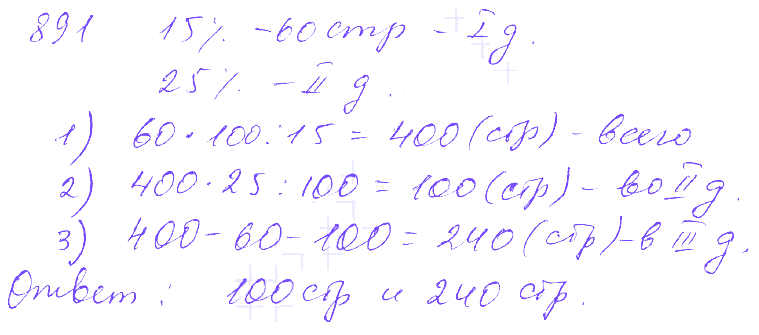 891 15% - 60 стр - I д.
25% - II д.
1) 60 · 100 : 15 = 400 (стр) - всего
2) 400 · 25 : 100 = 100 (стр) - во II д.
3) 400 - 60 - 100 = 240 (стр) - в III д.
Ответ : 100 стр и 240 стр.